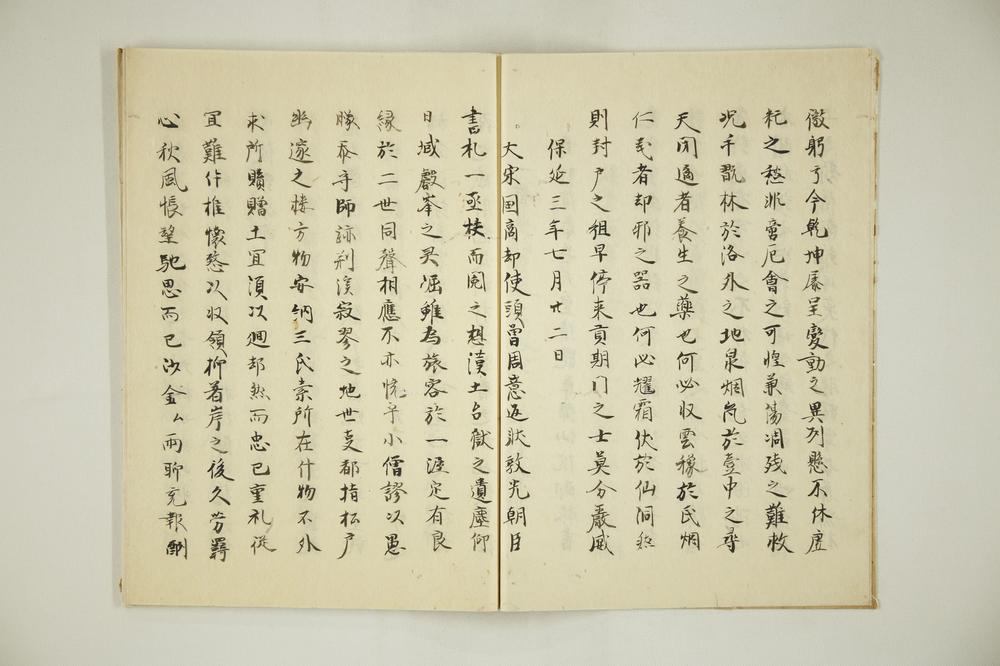 徴躬乎今乾坤屡呈變動之異列懸不休虚
耗之愁非啻厄會之可惶兼傷凋残之難救
况千翫林於洛外之地泉烟氣於壺中之尋
天聞適者養生之藥也何必収雲穟於民烟
仁義者却邪之器也何必耀霜伏於仙洞然
則封戸之租早停来貢期門之士莫分嚴威
保延三年七月廿二日
大宋國商却使頭曽周意返状敦光朝臣
書札一亟扶而閲之想漢土台獄之遺塵仰
日域巖峯之冥崛雖為旅客於一涯定有良
縁於二世同聲相應不亦悦乎小僧謬以愚
朦忝守師跡荆溪寂寥之地世支都指松戸
幽邃之棲方物安納三氏索所在什物不外
求所贖贈土冝須以廻却然而忠已重礼従
冝難什推懐慜以収領抑著岸之後久労羇
心秋風悵望馳思而已沙金ム両聊充報酬